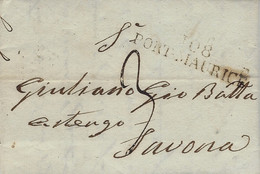 Sr
108
PORT-MAURICE
3
Giuliano Gio Batta
astengo
Savona